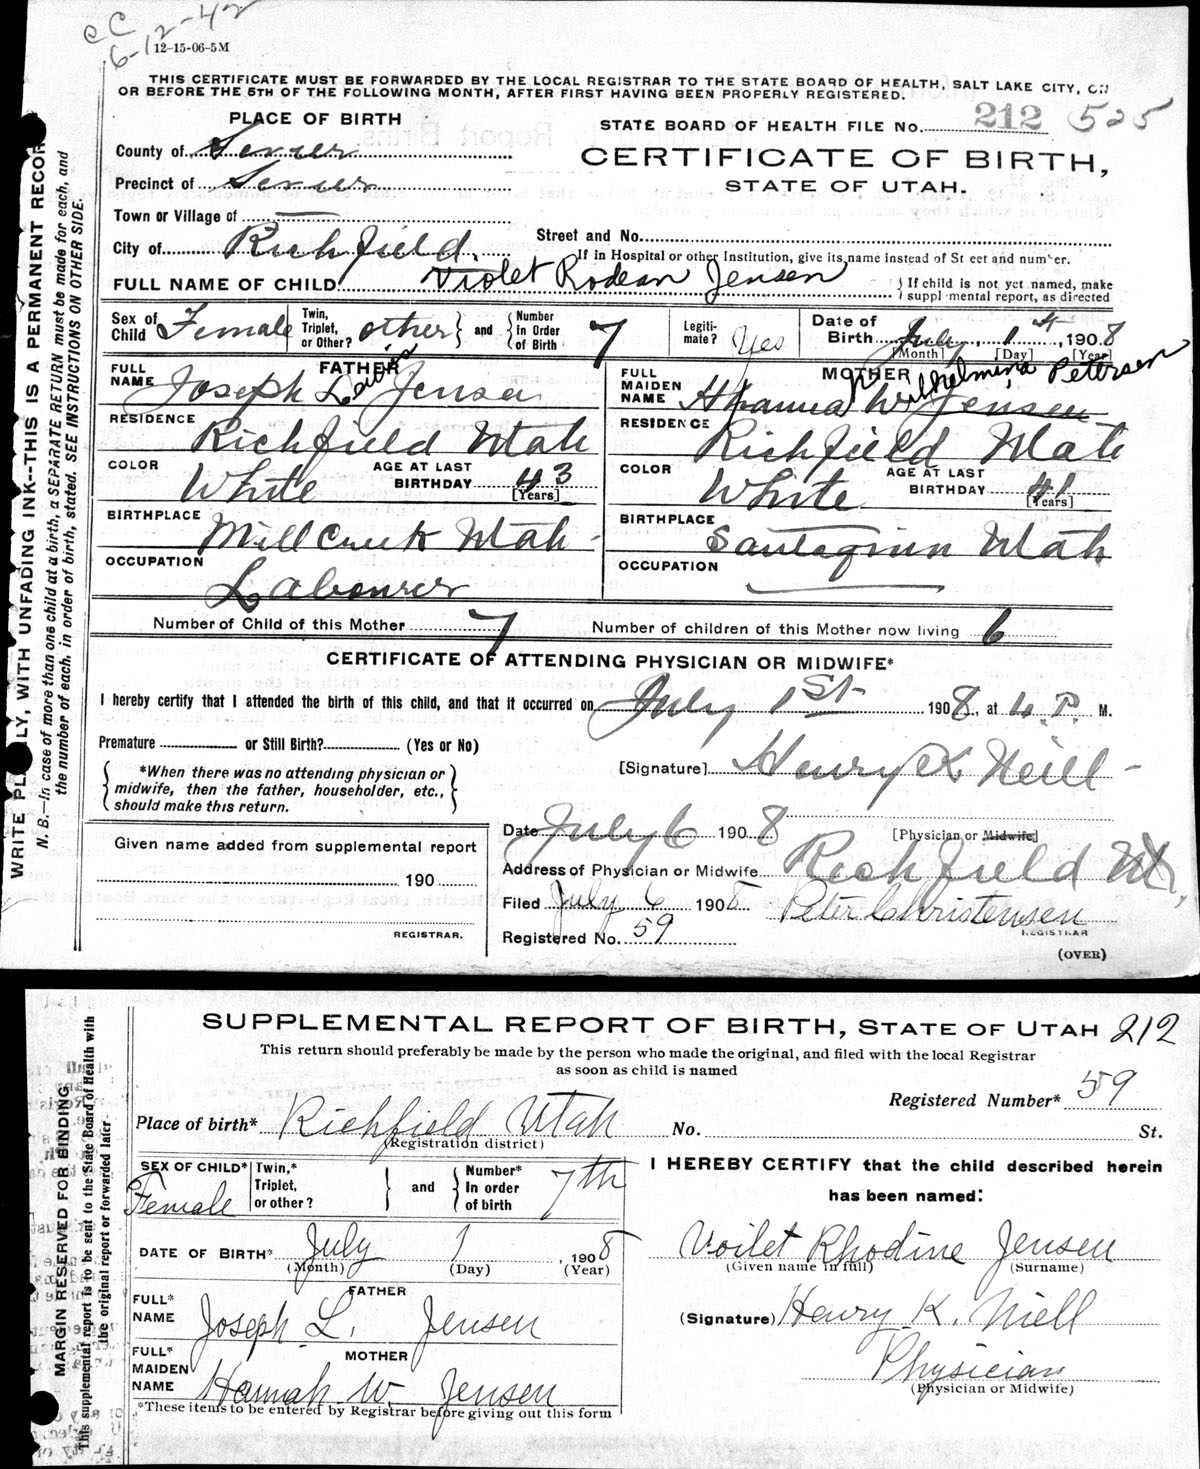 CC
6-12-42
12-15-06-5M
THIS CERTIFICATE MUST BE FORWARDED BY THE LOCAL REGISTRAR TO THE STATE BOARD OF HEALTH, SALT LAKE CITY, ON
OR BEFORE THE 5TH OF THE FOLLOWING MONTH, AFTER FIRST HAVING BEEN PROPERLY REGISTERED.
WRITE PLAINLY, WITH UNFADING INK--THIS IS A PERMANENT RECORD
N. B.—In case of more than one child at a birth, a SEPARATE RETURN must be made for each, and
the number of each, in order of birth, stated. SEE INSTRUCTIONS ON OTHER SIDE.
PLACE OF BIRTH
STATE BOARD OF HEALTH FILE No. 212 525
County of Sevier
CERTIFICATE OF BIRTH,
Precinct of Sevier
STATE OF UTAH.
Town or Village of —
City of Richfield.
Street and No.
If in Hospital or other Institution, give its name instead of St eet and number.
FULL NAME OF CHILD Violet Rodean Jensen
If child is not yet named, make
suppl mental report, as directed
Sex of Child Female
Twin, Triplet, or Other? other and Number in Order of Birth 7
Legiti-mate? Yes
Date of Birth July 1st, 1908
[Month] [Day] [Year]
FATHER
FULL NAME Joseph Lewis Jensen
RESIDENCE Richfield Utah
COLOR White AGE AT LAST BIRTHDAY 43 [Years]
BIRTHPLACE Mill Creek Utah
OCCUPATION Labourer
MOTHER
FULL MAIDEN NAME Hannah W. Jensen Wilhelmina Petersen
RESIDENCE Richfield Utah
COLOR White AGE AT LAST BIRTHDAY 41 [Years]
BIRTHPLACE Santaquin Utah
OCCUPATION —
Number of Child of this Mother 7 Number of children of this Mother now living 6
CERTIFICATE OF ATTENDING PHYSICIAN OR MIDWIFE*
I hereby certify that I attended the birth of this child, and that it occurred on July 1st 1908, at 4 P. M.
Premature or Still Birth? (Yes or No)
*When there was no attending physician or
midwife, then the father, householder, etc.,
should make this return.
[Signature] Henry K Neill
[Physician or Midwife]
Date July 6 1908
Given name added from supplemental report
190
REGISTRAR.
Address of Physician or Midwife Richfield Ut,
Filed July 6 1908 Peter Christensen
REGISTRAR
Registered No. 59
(OVER)
MARGIN RESERVED FOR BINDING
This supplemental report is to be sent to the State Board of Health with
the original report or forwarded later
SUPPLEMENTAL REPORT OF BIRTH, STATE OF UTAH 212
This return should preferably be made by the person who made the original, and filed with the local Registrar
as soon as child is named
Registered Number* 59
Place of birth* Richfield Utah No. St.
(Registration district)
SEX OF CHILD* Female
Twin,* Triplet, or other? and Number* In order of birth 7th
DATE OF BIRTH* July 1, 1908
(Month) (Day) (Year)
FATHER
FULL* NAME Joseph L. Jensen
MOTHER
FULL* MAIDEN NAME Hannah W. Jensen
*These items to be entered by Registrar before giving out this form
I HEREBY CERTIFY that the child described herein
has been named:
Voilet Rhodine Jensen
(Given name in full) (Surname)
(Signature) Henry K. Niell
Physician
(Physician or Midwife)